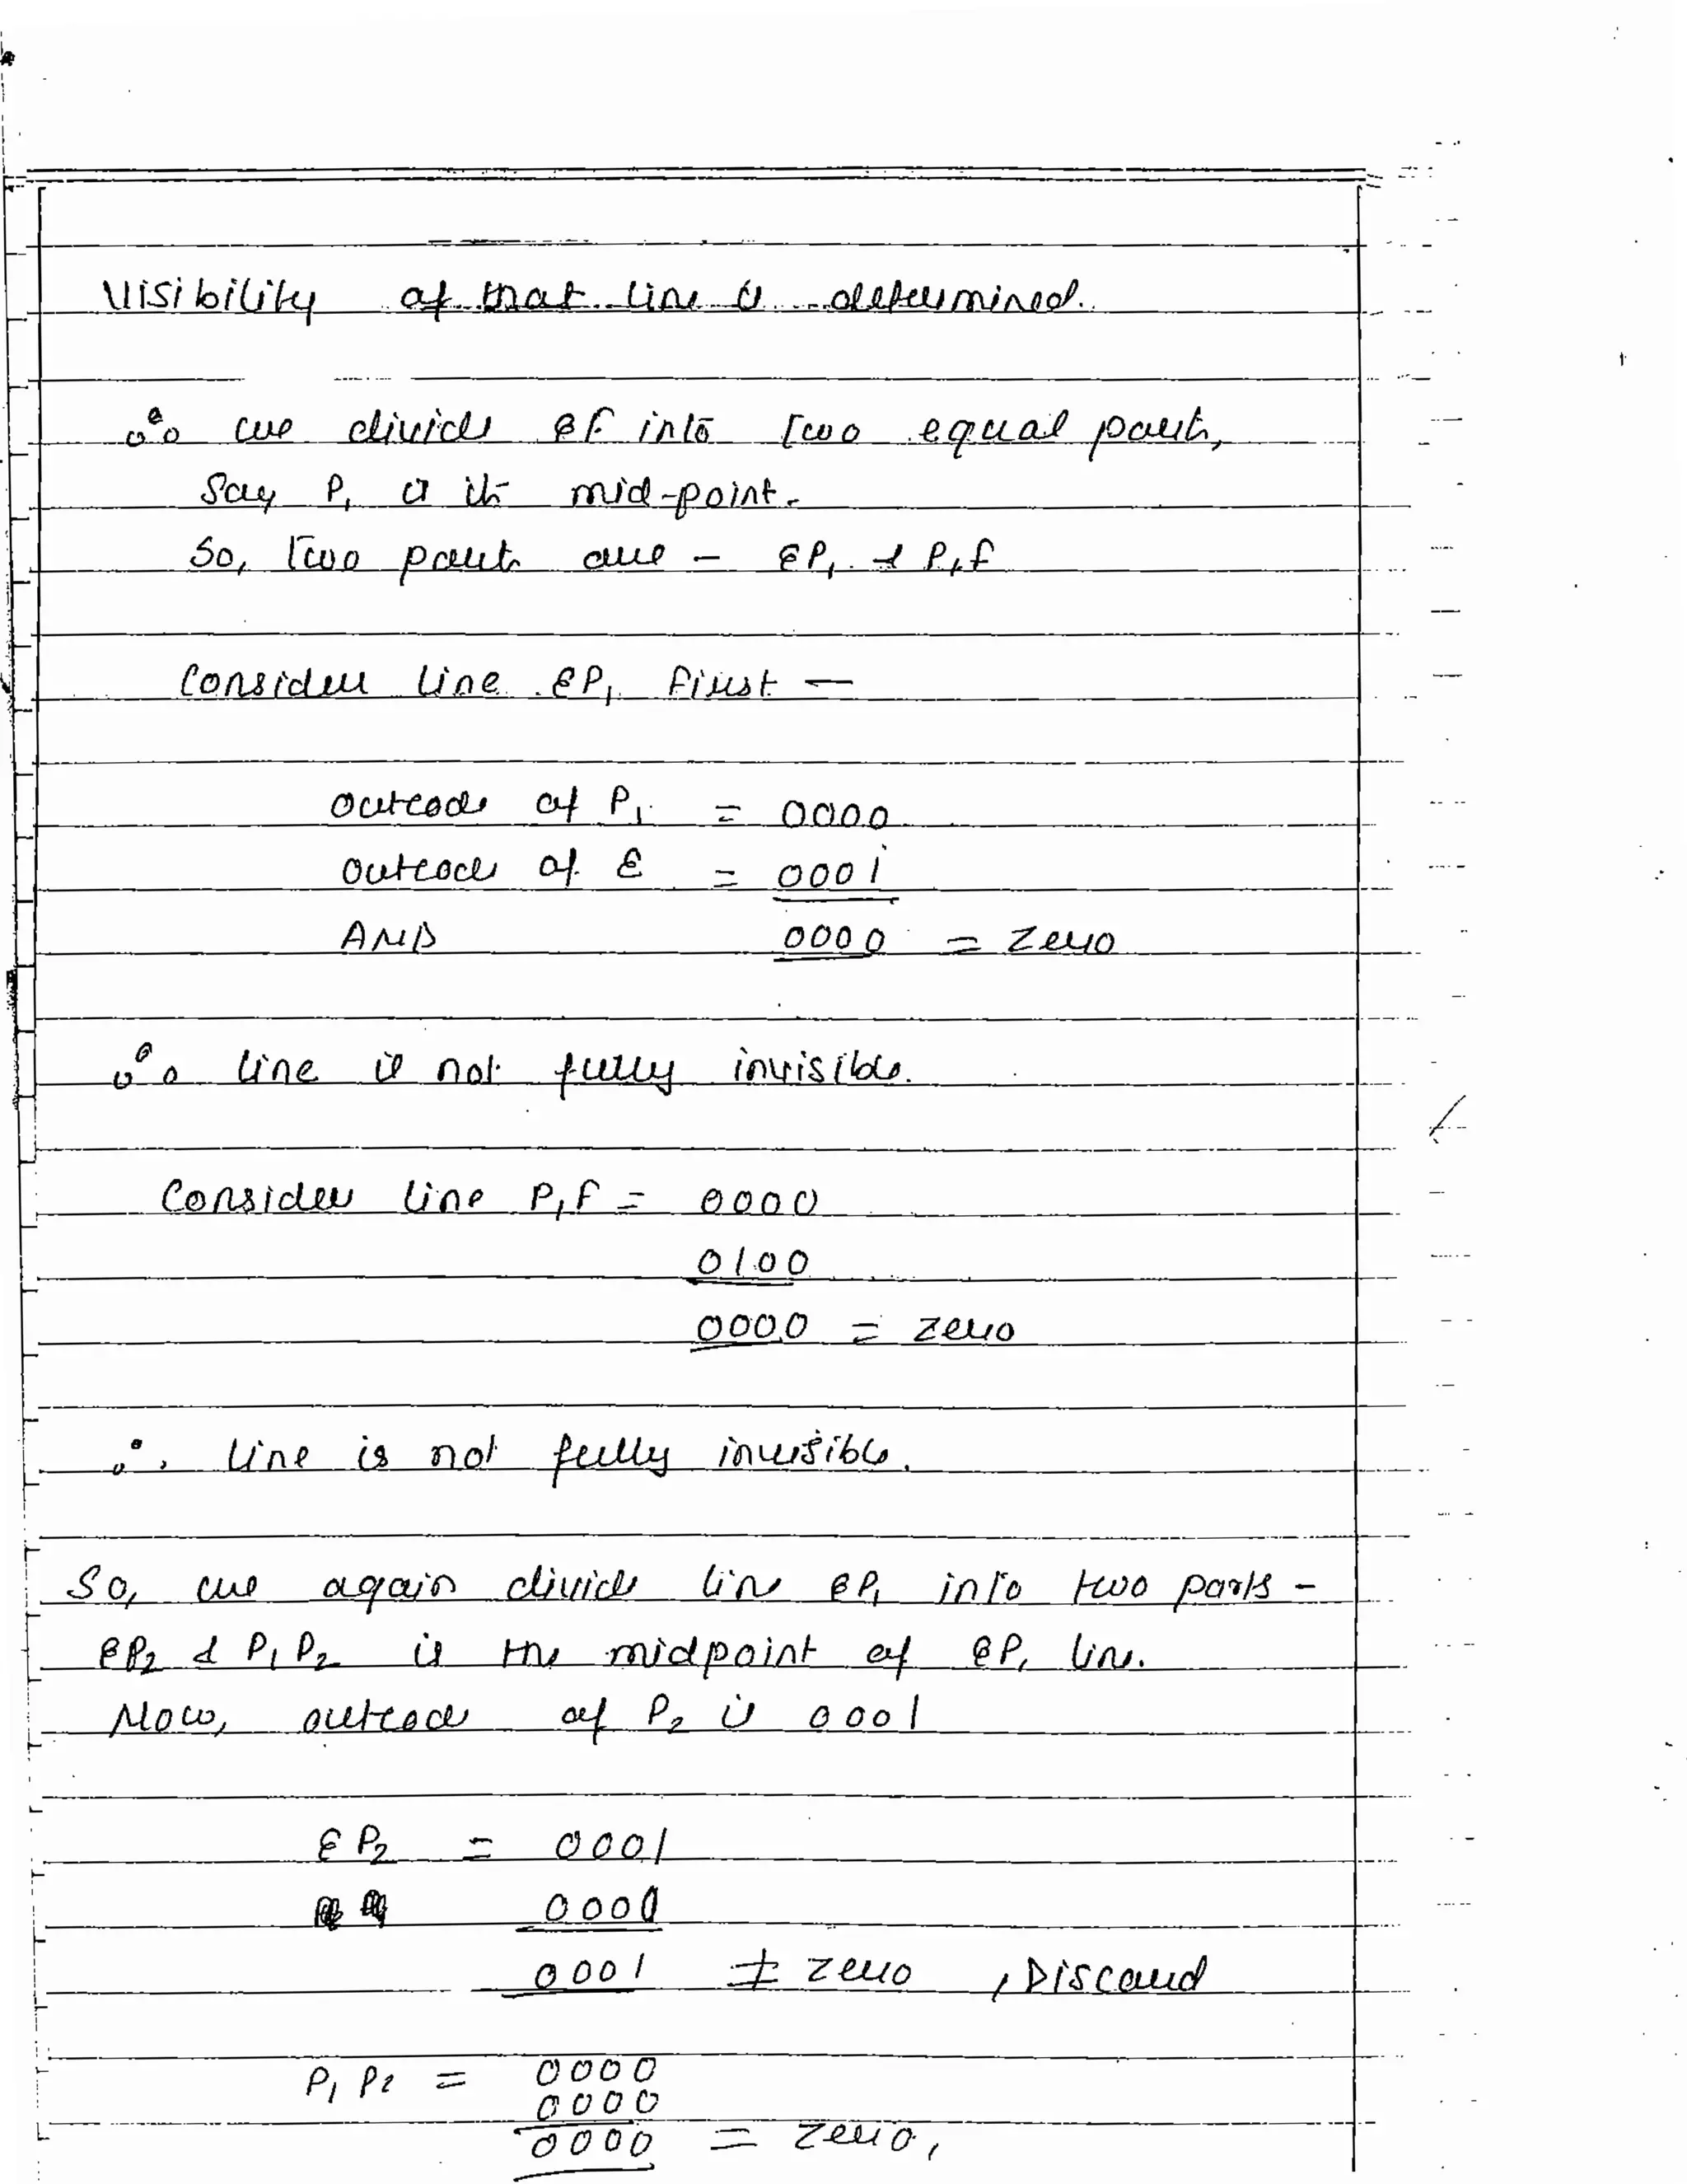 Visibility of that line is determined.
∴ we divide EF into two equal parts,
Say P₁ is its mid-point.
So, two parts are - EP₁ & P₁F
Consider line EP₁ First —
outcode of P₁ = 0000
outcode of E = 0001
AND 0000 = Zero
∴ line is not fully invisible.
Consider line P₁F = 0000
0100
0000 = zero
∴ line is not fully invisible.
So, we again divide line EP₁ into two parts -
EP₂ & P₁P₂ is the midpoint of EP₁ line.
Now, outcode of P₂ is 0001
EP₂ = 0001
0001 ≠ zero , Discard
P₁P₂ = 0000
0000
0000 = zero,